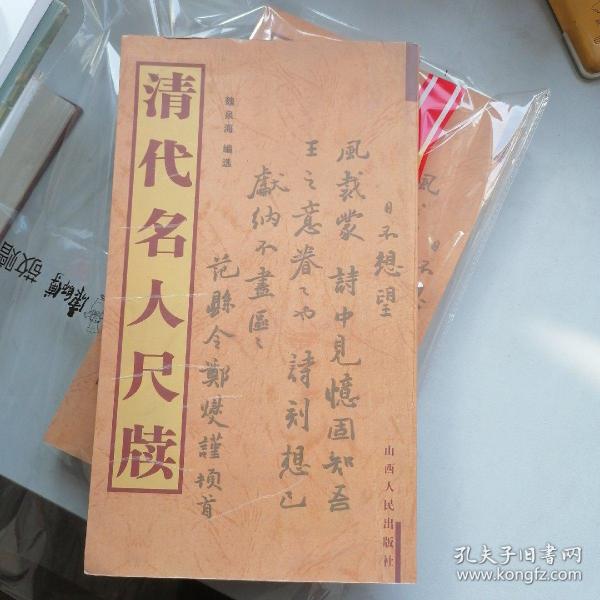 清代名人尺牍
魏泉海 编选
日不想望
風裁蒙 詩中見憶固知吾
王之意眷〻也 詩刻想已
獻納不盡區〻
范縣令鄭燮謹頓首
山西人民出版社
敬贈
孔夫子旧书网
www.kongfz.com